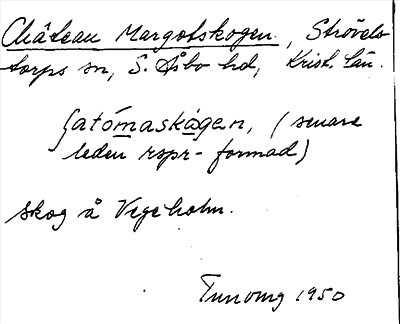 Château Margotskogen, Strövels-
torps sn, S. Åsbo hd, Krist. län.
ʃatómaskågen, (senare
leden rspr-formad)
skog å Vegeholm.
1950